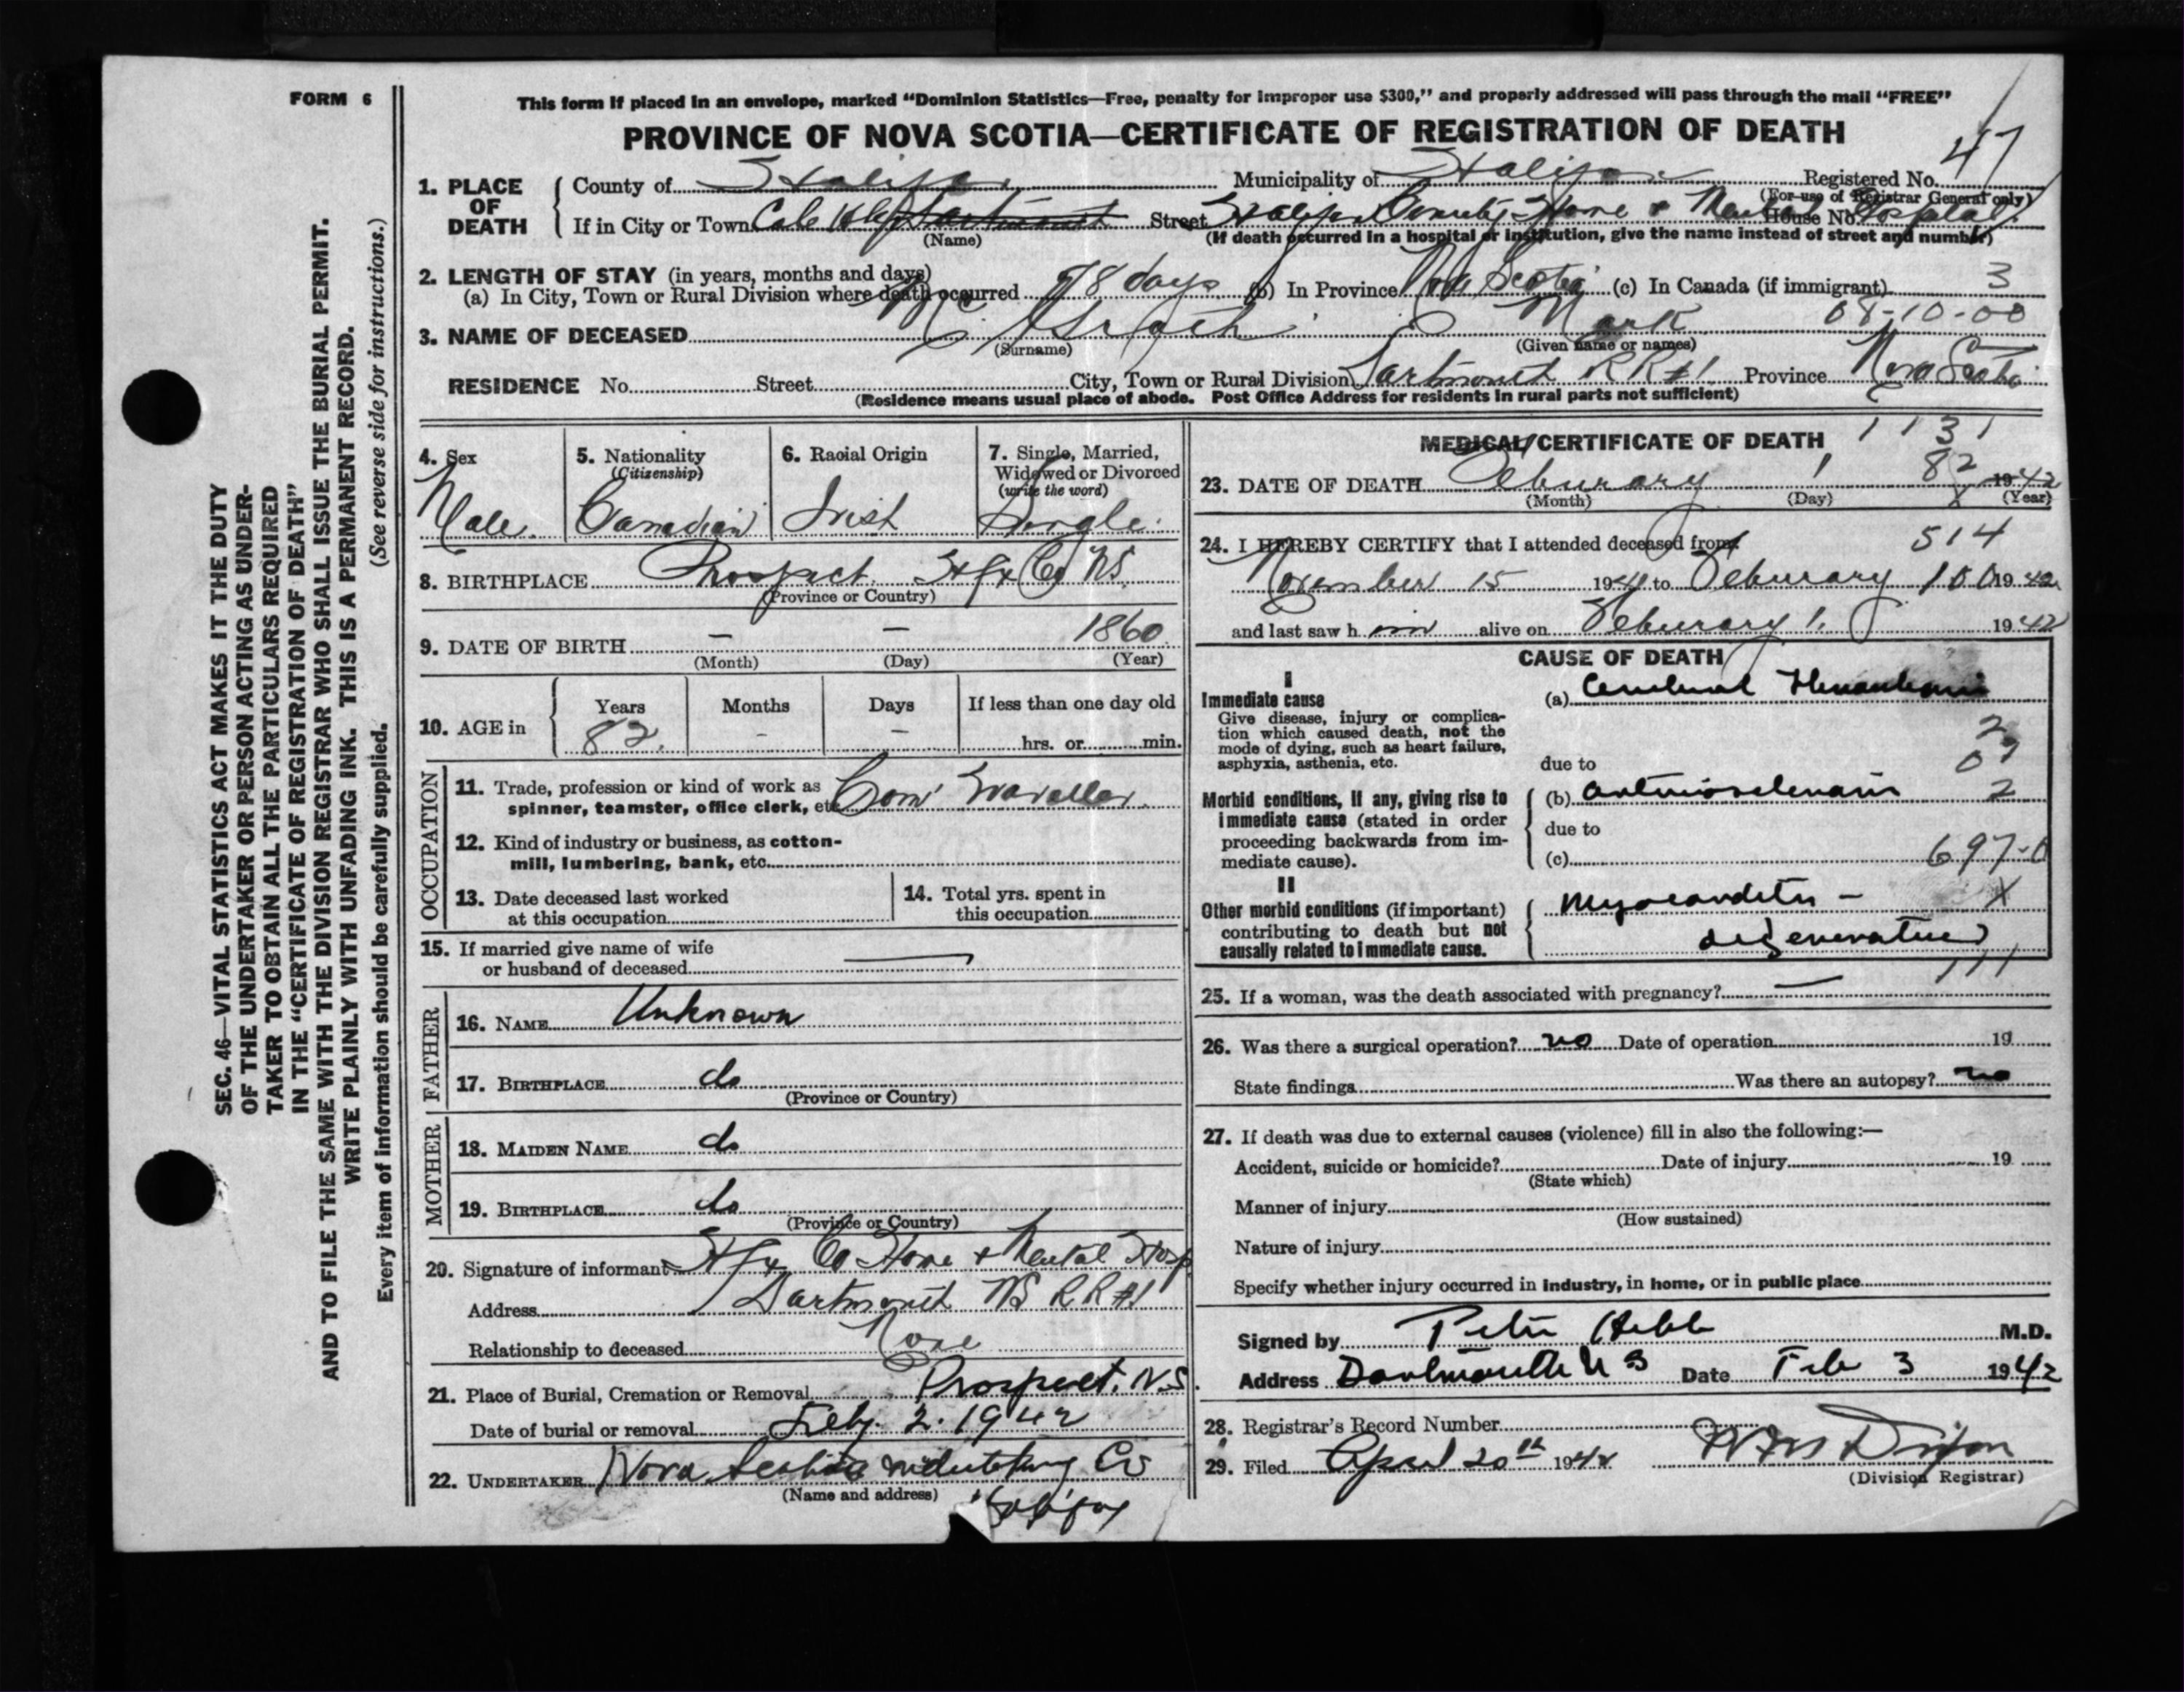 FORM 6
This form if placed in an envelope, marked "Dominion Statistics—Free, penalty for improper use $300," and properly addressed will pass through the mail "FREE"
PROVINCE OF NOVA SCOTIA—CERTIFICATE OF REGISTRATION OF DEATH
47
1. PLACE OF DEATH County of Halifax Municipality of Halifax Registered No.
(For use of Registrar General only)
If in City or Town Cole Hbr Dartmouth Street Halifax County Home + Mental Hospital House No.
(Name) (If death occurred in a hospital or institution, give the name instead of street and number)
2. LENGTH OF STAY (in years, months and days)
(a) In City, Town or Rural Division where death occurred 78 days (b) In Province Nova Scotia (c) In Canada (if immigrant) 3
08-10-00
3. NAME OF DECEASED McGrath Mark
(Surname) (Given name or names)
RESIDENCE No. Street City, Town or Rural Division Dartmouth RR#1 Province Nova Scotia
(Residence means usual place of abode. Post Office Address for residents in rural parts not sufficient)
4. Sex 5. Nationality 6. Racial Origin 7. Single, Married,
(Citizenship) Widowed or Divorced
(write the word)
Male. Canadian Irish Single.
8. BIRTHPLACE Prospect Hfx Co NS.
(Province or Country)
9. DATE OF BIRTH — — 1860
(Month) (Day) (Year)
10. AGE in Years Months Days If less than one day old
82. - - hrs. or min.
OCCUPATION
11. Trade, profession or kind of work as
spinner, teamster, office clerk, etc. Com' Traveller
12. Kind of industry or business, as cotton-
mill, lumbering, bank, etc.
13. Date deceased last worked
at this occupation
14. Total yrs. spent in
this occupation
15. If married give name of wife
or husband of deceased —
FATHER
16. NAME Unknown
17. BIRTHPLACE do
(Province or Country)
MOTHER
18. MAIDEN NAME do
19. BIRTHPLACE do
(Province or Country)
20. Signature of informant Hfx Co Home + Mental Hosp
Address Dartmouth NS RR#1
Relationship to deceased None
21. Place of Burial, Cremation or Removal Prospect, N.S.
Date of burial or removal Feby. 2. 1942
22. UNDERTAKER Nova Scotia Undertaking Co
(Name and address) Halifax
MEDICAL CERTIFICATE OF DEATH 1131
82
23. DATE OF DEATH Feburary 1 1942
(Month) (Day) (Year)
24. I HEREBY CERTIFY that I attended deceased from 514
November 15 1941 to Feburary 1 1942
and last saw him alive on Feburary 1. 1942
CAUSE OF DEATH
I
Immediate cause
Give disease, injury or complica-
tion which caused death, not the
mode of dying, such as heart failure,
asphyxia, asthenia, etc.
(a) Cerebral Hemorrhage
due to
Morbid conditions, if any, giving rise to
immediate cause (stated in order
proceeding backwards from im-
mediate cause).
(b) arteriosclerosis 2
due to
(c) 697-0
II
Other morbid conditions (if important)
contributing to death but not
causally related to immediate cause.
Myocarditis — X
degenerative
111
25. If a woman, was the death associated with pregnancy? —
26. Was there a surgical operation? no Date of operation 19
State findings Was there an autopsy? no
27. If death was due to external causes (violence) fill in also the following:—
Accident, suicide or homicide? Date of injury 19
(State which)
Manner of injury
(How sustained)
Nature of injury
Specify whether injury occurred in industry, in home, or in public place
Signed by Peter Hebb M.D.
Address Dartmouth N S Date Feb 3 1942
28. Registrar's Record Number
29. Filed April 20th 1942
(Division Registrar)
SEC. 46—VITAL STATISTICS ACT MAKES IT THE DUTY
OF THE UNDERTAKER OR PERSON ACTING AS UNDER-
TAKER TO OBTAIN ALL THE PARTICULARS REQUIRED
IN THE "CERTIFICATE OF REGISTRATION OF DEATH"
AND TO FILE THE SAME WITH THE DIVISION REGISTRAR WHO SHALL ISSUE THE BURIAL PERMIT.
WRITE PLAINLY WITH UNFADING INK. THIS IS A PERMANENT RECORD.
Every item of information should be carefully supplied. (See reverse side for instructions.)